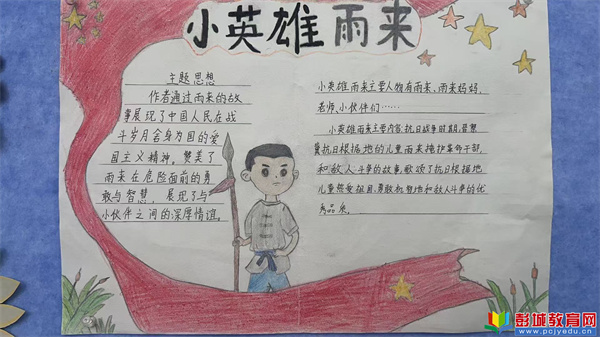 小英雄雨来
主题思想
作者通过雨来的故
事展现了中国人民在战
斗岁月舍身为国的爱
国主义精神。赞美了
雨来在危险面前的勇
敢与智慧，展现了与
小伙伴之间的深厚情谊。
小英雄雨来主要人物有雨来、雨来妈妈、
老师、小伙伴们……
小英雄雨来主要内容:抗日战争时期,晋察
冀抗日根据地的儿童雨来掩护革命干部,
和敌人斗争的故事,歌颂了抗日根据地
儿童热爱祖国、勇敢机智地和敌人斗争的优
秀品质。
彭城教育网
www.pcjyedu.cn